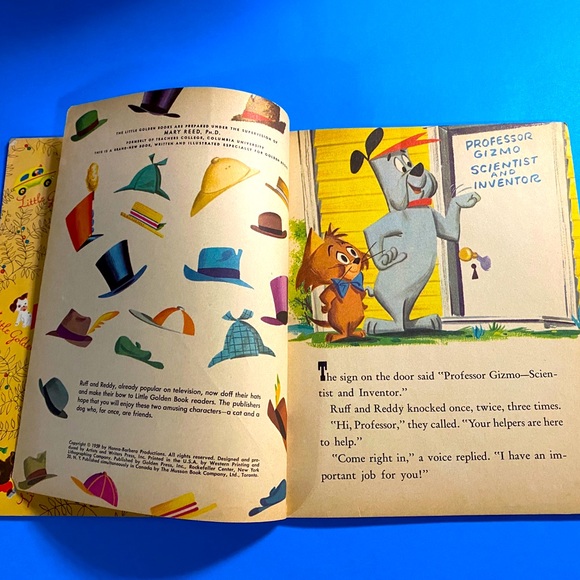 THE LITTLE GOLDEN BOOKS ARE PREPARED UNDER THE SUPERVISION OF
MARY REED, PH.D.
FORMERLY OF TEACHERS COLLEGE, COLUMBIA UNIVERSITY
THIS IS A BRAND-NEW BOOK, WRITTEN AND ILLUSTRATED ESPECIALLY FOR GOLDEN
Ruff and Reddy, already popular on television, now doff their hats
and make their bow to Little Golden Book readers. The publishers
hope that you will enjoy these two amusing characters—a cat and a
dog who, for once, are friends.
Copyright © 1959 by Hanna-Barbera Productions. All rights reserved. Designed and pro-
duced by Artists and Writers Press, Inc. Printed in the U.S.A. by Western Printing and
Lithographing Company. Published by Golden Press, Inc., Rockefeller Center, New York
20, N. Y. Published simultaneously in Canada by The Musson Book Company, Ltd., Toronto.
PROFESSOR
GIZMO
SCIENTIST
AND
INVENTOR
The sign on the door said "Professor Gizmo—Scien-
tist and Inventor."
Ruff and Reddy knocked once, twice, three times.
"Hi, Professor," they called. "Your helpers are here
to help."
"Come right in," a voice replied. "I have an im-
portant job for you!"